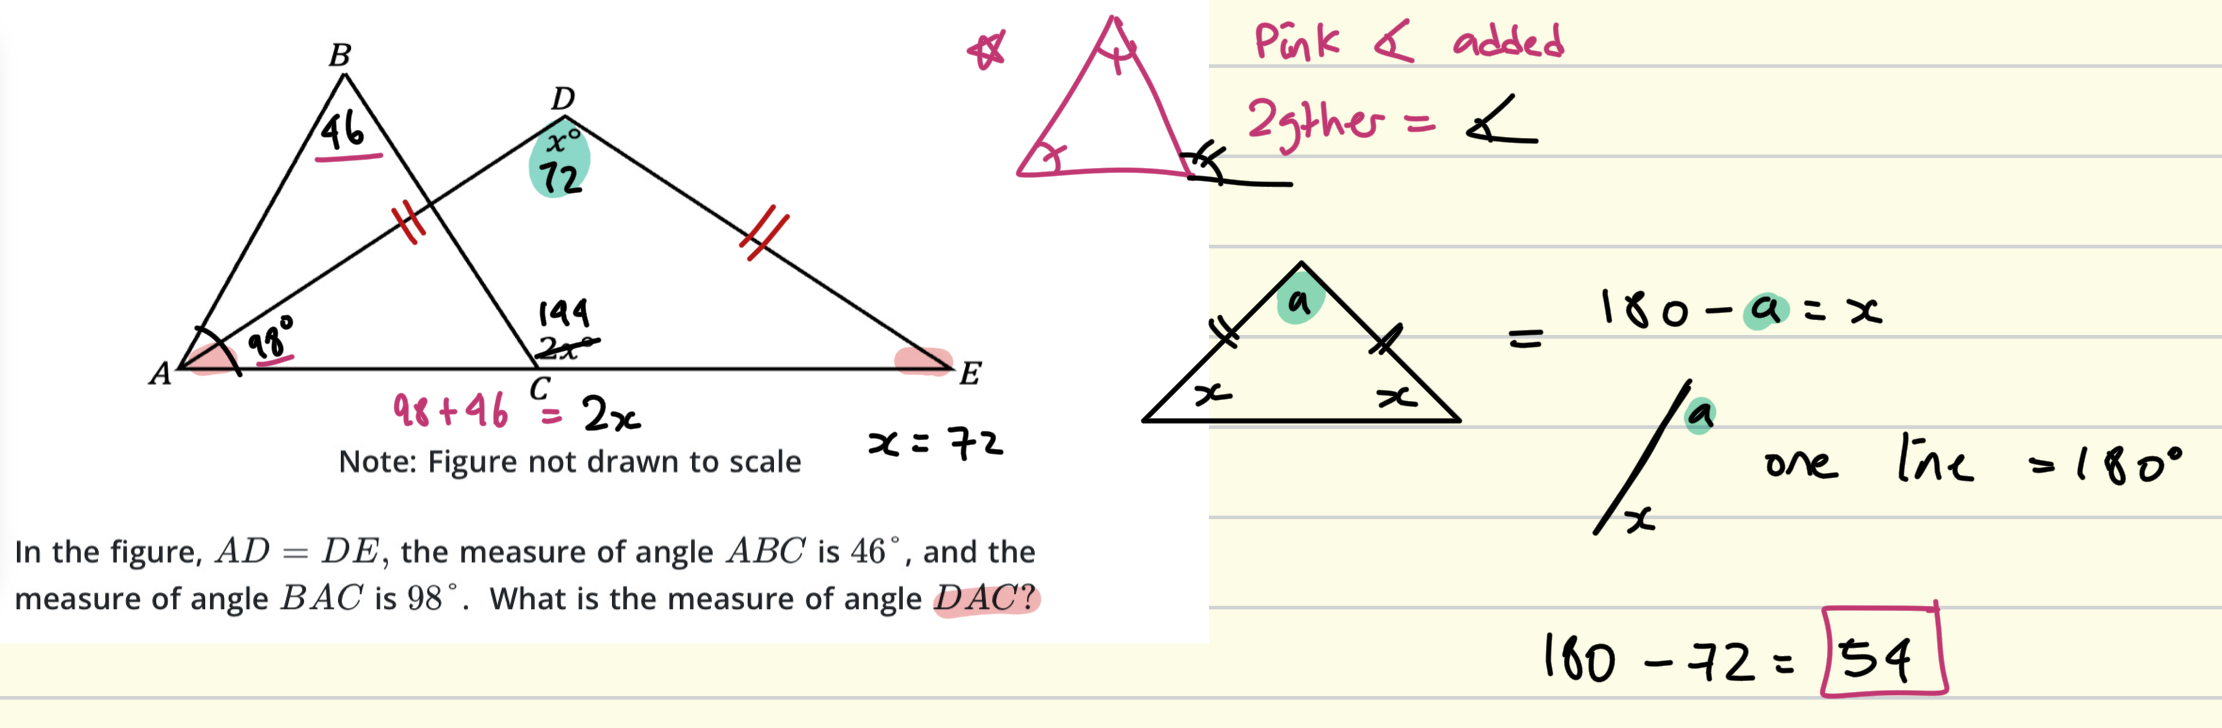 B
D
46
x°
72
98°
144
2x°
A
C
E
98 + 46 = 2x
x = 72
Note: Figure not drawn to scale
In the figure, AD = DE, the measure of angle ABC is 46°, and the
measure of angle BAC is 98°. What is the measure of angle DAC?
Pink ∡ added
2gther = ∡
a
x x
= 180 - a = x
a
x
one line = 180°
180 - 72 = 54